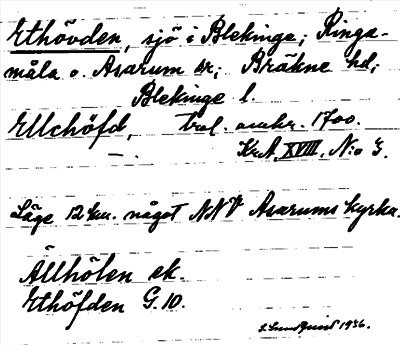 Ethövden, sjö i Blekinge; Ringa-
måla o. Asarum sr; Bräkne hd;
Blekinge l.
Ellchöfd, trol. omkr. 1700.
— . Kr.A. XVIII. N:o 3.
Läge 12 km. något NNV Asarums kyrka.
Ällhölen ek.
Ethöfden G. 10.
Lundquist 1936.